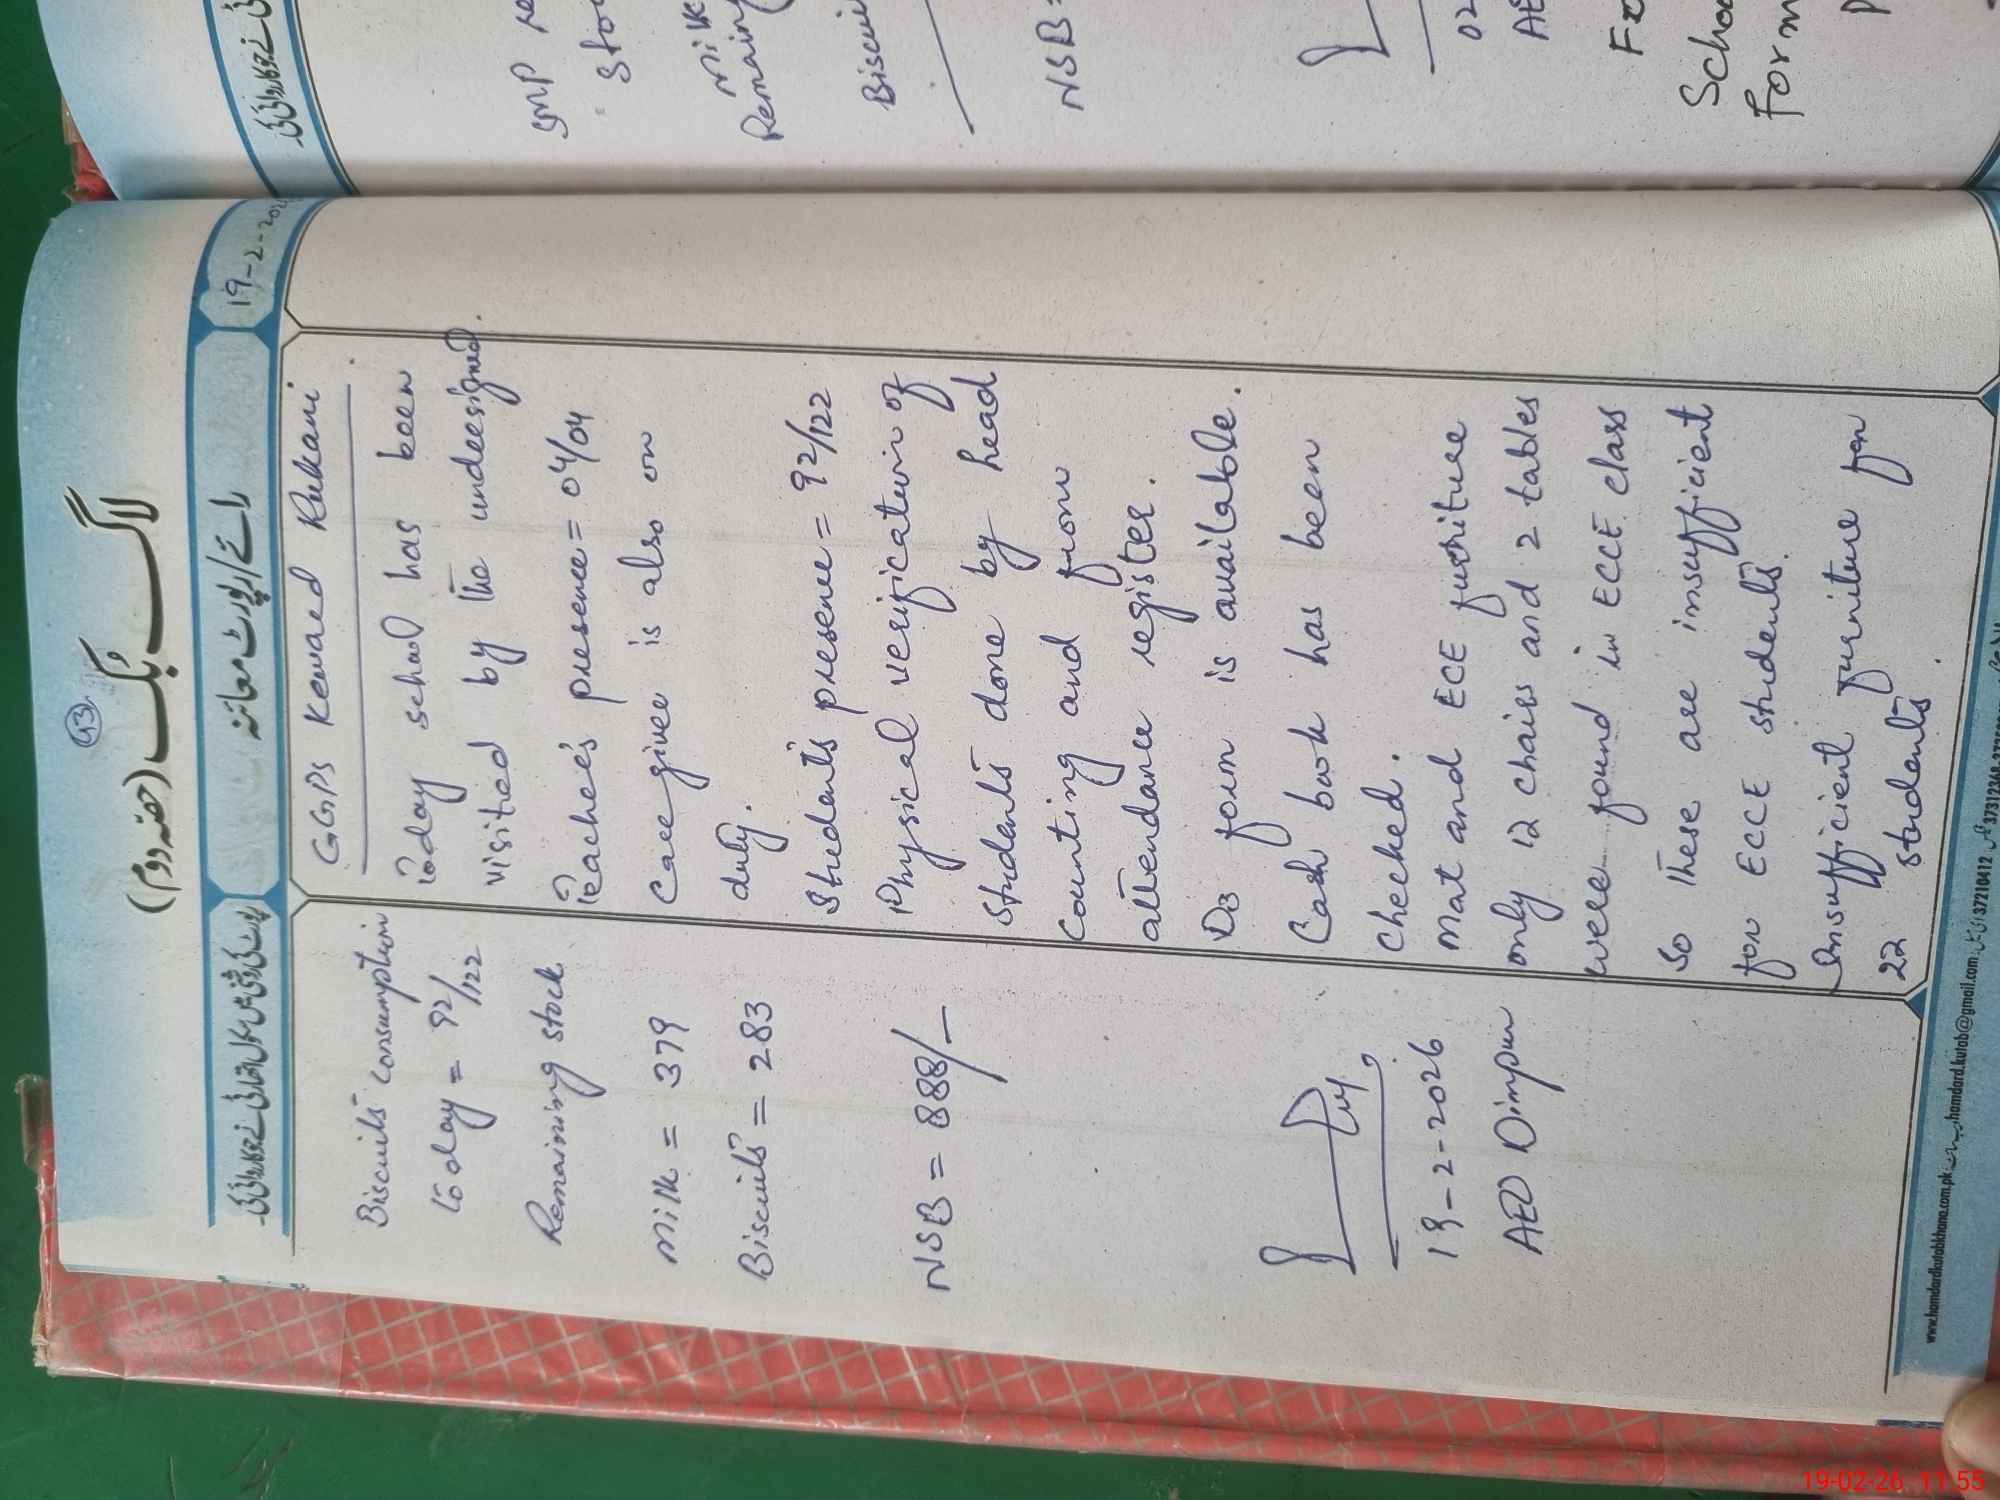 43
لاگ بُک (حصّہ دوم)
رائے/رپورٹ معائنہ
19-2-202
GGPS Kewaed Rukani
Today school has been
visited by the undersigned.
Teacher's presence = 04/04
Care giver is also on
duty.
Students presence = 92/122
Physical verification of
students done by head
counting and from
attendance register.
D3 form is available.
Cash book has been
checked.
Mat and ECE furniture
only 12 chairs and 2 tables
were found in ECCE class
So these are insufficient
for ECCE students.
Insufficient furniture for
22 students.
Biscuits consumption
today = 92/122
Remaining stock
Milk = 379
Biscuits = 283
NSB = 888/-
19-2-2026
AEO Dimpur
www.hamdardkutabkhana.com.pk
hamdard.kutab@gmail.com
37210412
SMP
Sto
Milk
Remaining
Biscui
NSB =
02
AE
Fo
Schoo
form
19-02-26 11:55